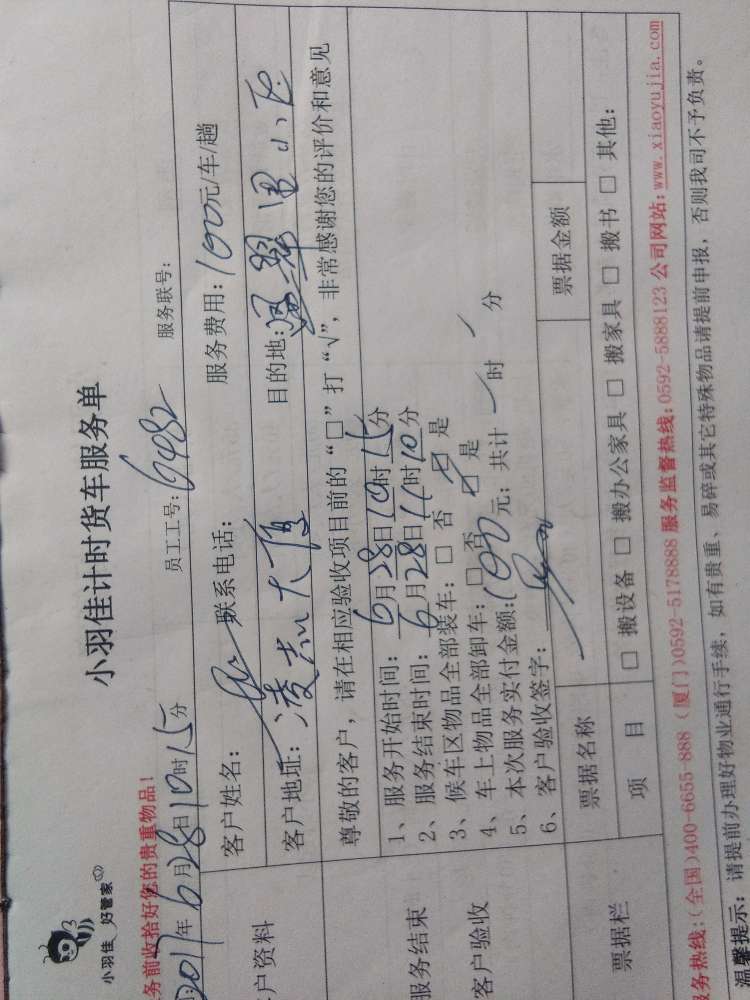 小羽佳 好管家
小羽佳计时货车服务单
务前收拾好您的贵重物品！
2017年6月28日10时15分 员工工号：6482 服务联号：
户资料
客户姓名： 联系电话： 服务费用：100元/车/趟
客户地址：凌志大厦 目的地：
尊敬的客户，请在相应验收项目前的“□”打“√”，非常感谢您的评价和意见
服务结束
客户验收
1、服务开始时间：6月28日10时15分
2、服务结束时间：6月28日11时10分
3、候车区物品全部装车：□ 否 ☑ 是
4、车上物品全部卸车：□ 否 ☑ 是
5、本次服务实付金额：100元；共计 / 时 / 分
6、客户验收签字：
票据栏
票据名称 票据金额
项 目 □ 搬设备 □ 搬办公家具 □ 搬家具 □ 搬书 □ 其他：
务热线：（全国）400-6655-888（厦门）0592-5178888 服务监督热线：0592-5888123 公司网站：www.xiaoyujia.com
温馨提示：请提前办理好物业通行手续，如有贵重、易碎或其它特殊物品请提前申报，否则我司不予负责。